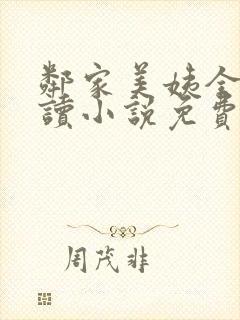 鄰家美姨全
讀小說免費
周茂非